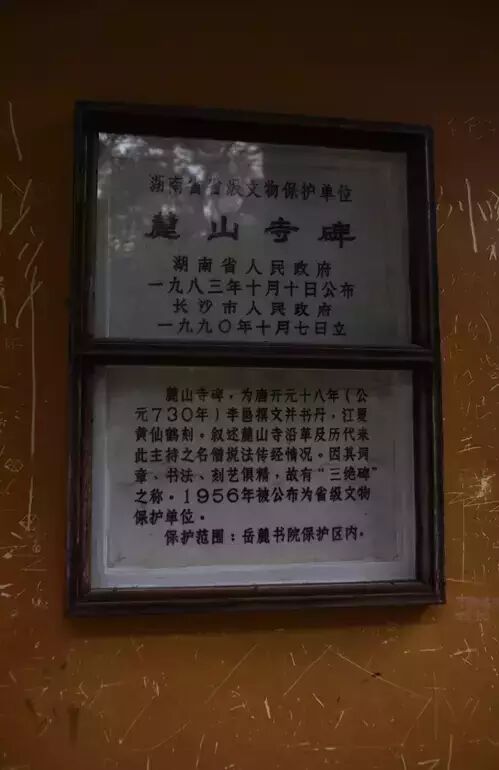 湖南省省级文物保护单位
麓山寺碑
湖南省人民政府
一九八三年十月十日公布
长沙市人民政府
一九九〇年十月七日立
麓山寺碑，为唐开元十八年（公
元730年）李邕撰文并书丹，江夏
黄仙鹤刻。叙述麓山寺沿革及历代来
此主持之名僧说法传经情况。因其词
章、书法、刻艺俱精，故有“三绝碑”
之称。1956年被公布为省级文物
保护单位。
保护范围：岳麓书院保护区内。